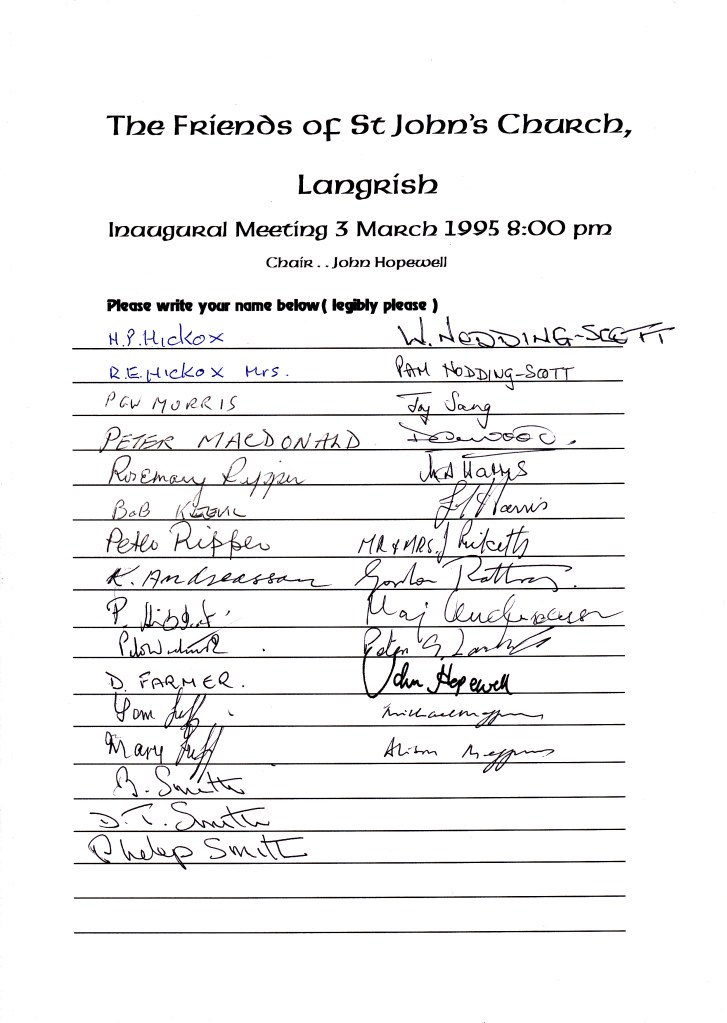 The Friends of St John's Church,
Langrish
Inaugural Meeting 3 March 1995 8:00 pm
Chair . . John Hopewell
Please write your name below ( legibly please )
H.P. Hickox W. NODDING-SCOTT
R.E. Hickox Mrs. PAM NODDING-SCOTT
PGW MORRIS Joy Sang
PETER MACDONALD
Rosemary Ripper
BOB Harris
Peter Ripper MR & MRS. J Ricketts
K. Andreasson Gordon
P.
Peter G.
D. FARMER. John Hopewell
Tom
Mary Alison
B. Smith
D.T. Smith
Philip Smith